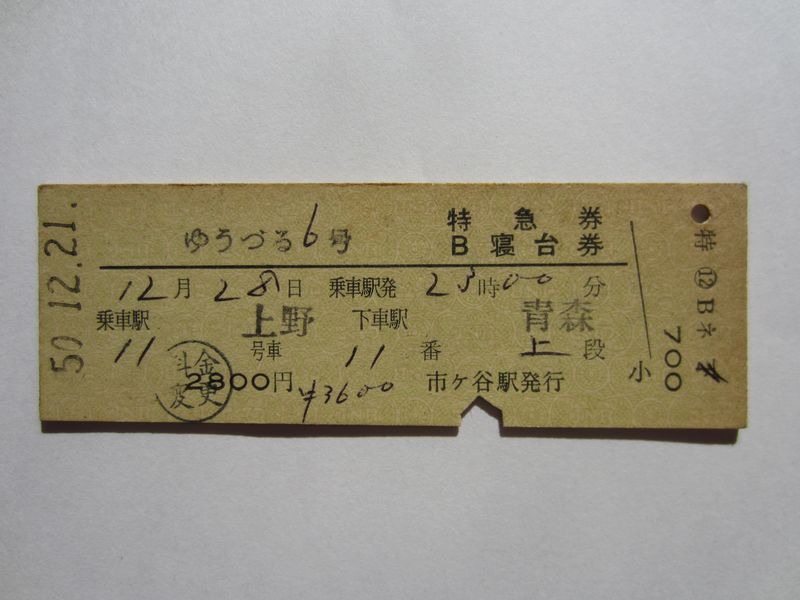 50.12.21.
ゆうづる6号
特急券
B寝台券
12月28日 乗車駅発 23時00分
乗車駅 上野 下車駅 青森
11号車 11番 上段
料金変更
2800円 ¥3600 市ケ谷駅発行
小
特⑫Bネ
700